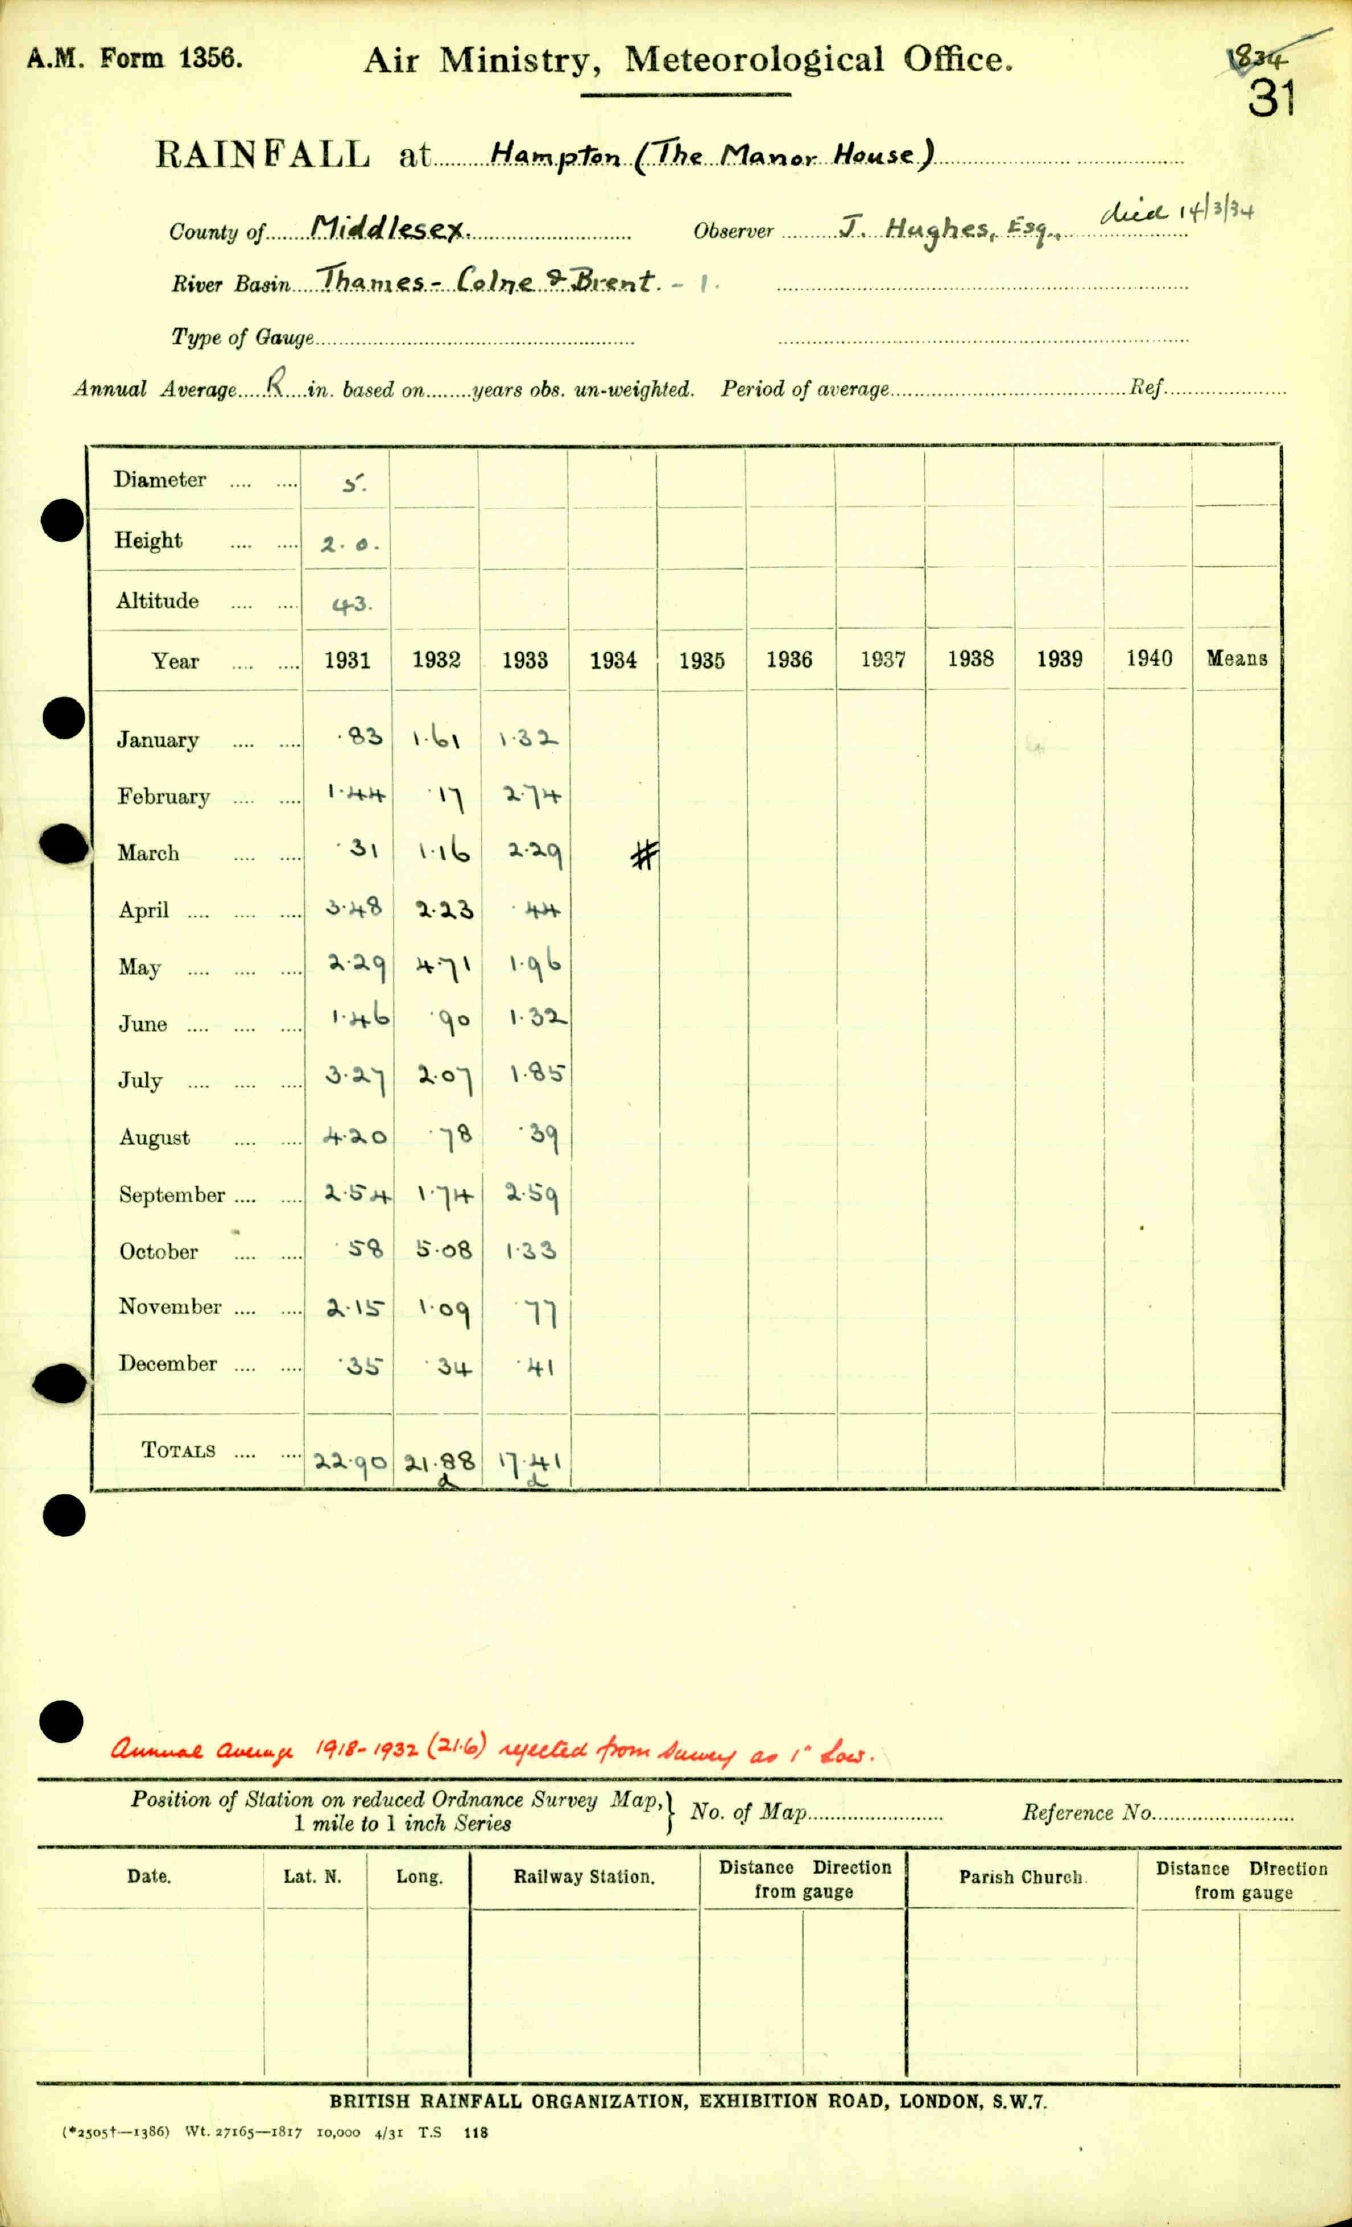 A.M. Form 1356. Air Ministry, Meteorological Office. 1834
31
RAINFALL at Hampton (The Manor House)
County of Middlesex. Observer J. Hughes, Esq., died 14/3/34
River Basin Thames - Colne & Brent. - 1.
Type of Gauge
Annual Average R in. based on years obs. un-weighted. Period of average Ref.
Diameter 5.
Height 2.0.
Altitude 43.
Year 1931 1932 1933 1934 1935 1936 1937 1938 1939 1940 Means
January .83 1.61 1.32
February 1.44 .17 2.74
March .31 1.16 2.29 #
April 3.48 2.23 .44
May 2.29 4.71 1.96
June 1.46 .90 1.32
July 3.27 2.07 1.85
August 4.20 .78 .39
September 2.54 1.74 2.59
October .58 5.08 1.33
November 2.15 1.09 .77
December .35 .34 .41
TOTALS 22.90 21.88 17.41
d d
Annual average 1918-1932 (21.6) rejected from survey as 1" low.
Position of Station on reduced Ordnance Survey Map, } No. of Map Reference No.
1 mile to 1 inch Series
Date. Lat. N. Long. Railway Station. Distance Direction from gauge Parish Church. Distance Direction from gauge
BRITISH RAINFALL ORGANIZATION, EXHIBITION ROAD, LONDON, S.W.7.
(*2505†—1386) Wt. 27165—1817 10,000 4/31 T.S 118